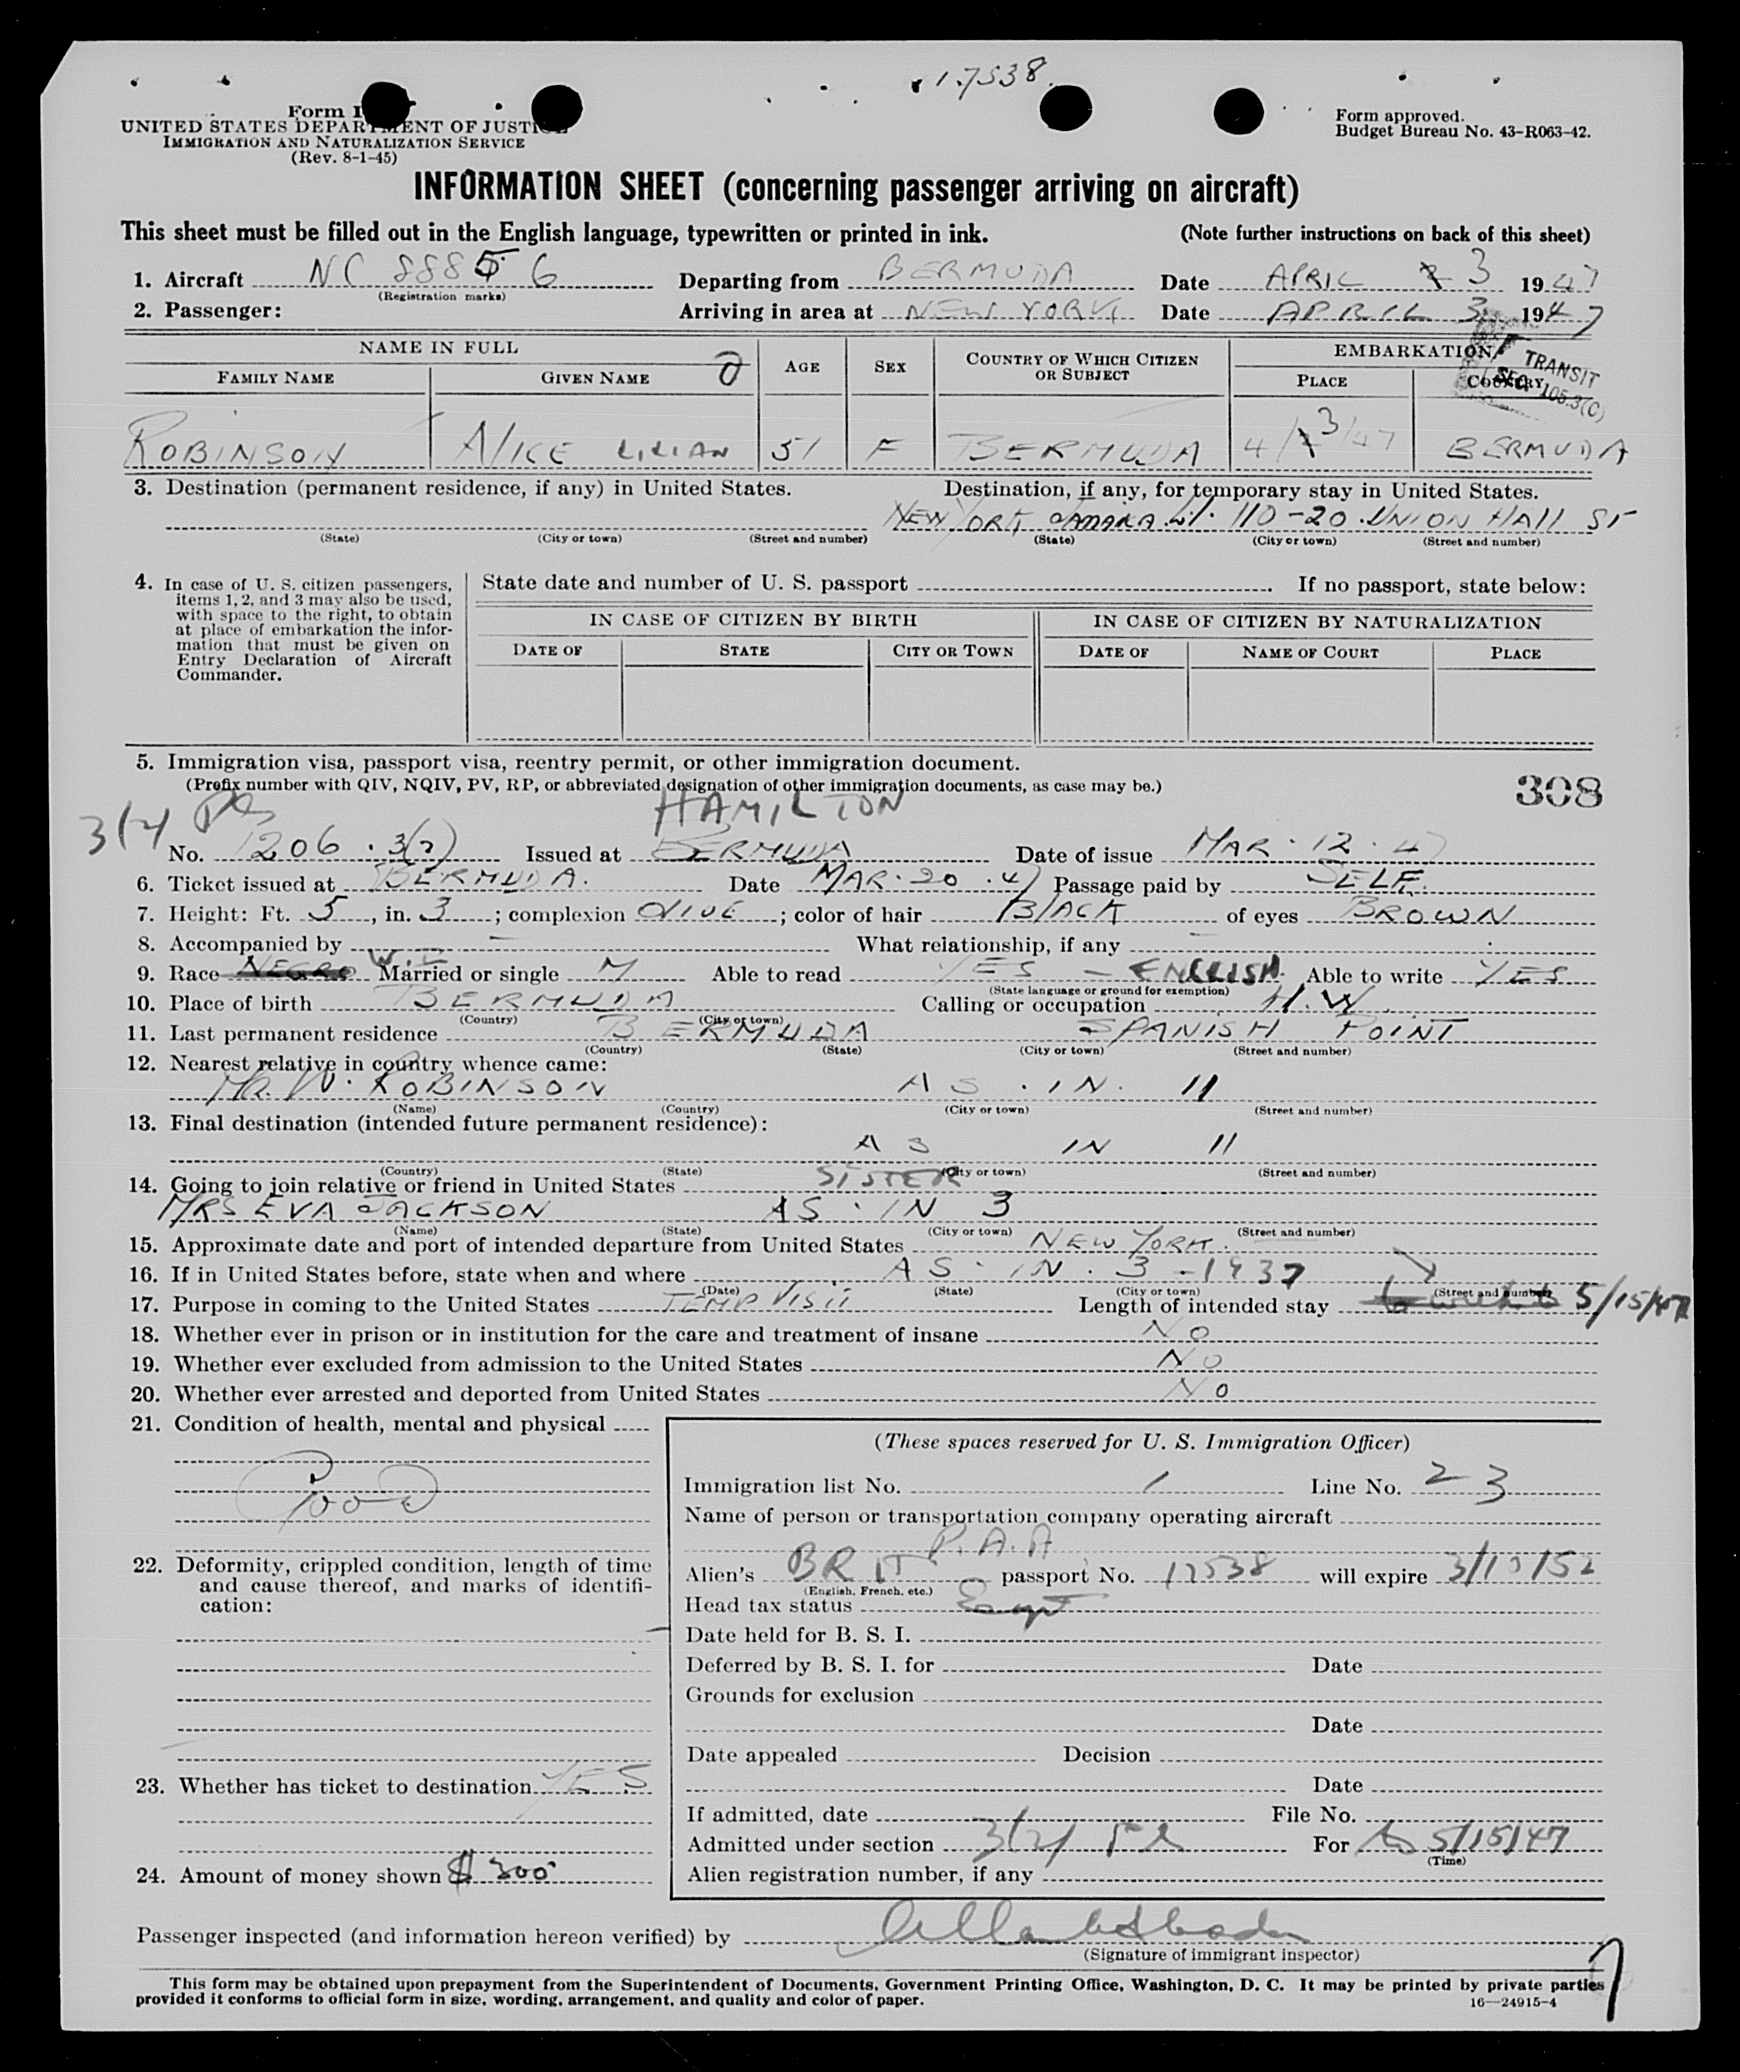 17538
Form I
UNITED STATES DEPARTMENT OF JUSTICE
IMMIGRATION AND NATURALIZATION SERVICE
(Rev. 8-1-45)
Form approved.
Budget Bureau No. 43-R063-42.
INFORMATION SHEET (concerning passenger arriving on aircraft)
This sheet must be filled out in the English language, typewritten or printed in ink. (Note further instructions on back of this sheet)
1. Aircraft NC 88856 Departing from BERMUDA Date APRIL 3 1947
(Registration marks)
2. Passenger: Arriving in area at NEW YORK Date APRIL 3 1947
NAME IN FULL AGE SEX COUNTRY OF WHICH CITIZEN OR SUBJECT EMBARKATION
FAMILY NAME GIVEN NAME PLACE COUNTRY
TRANSIT
SEC. 105.3(C)
ROBINSON ALICE LILIAN 51 F BERMUDA 4/3/47 BERMUDA
3. Destination (permanent residence, if any) in United States. Destination, if any, for temporary stay in United States.
NEW YORK JAMAIKA L.I. 110-20 UNION HALL ST
(State) (City or town) (Street and number) (State) (City or town) (Street and number)
4. In case of U. S. citizen passengers, items 1, 2, and 3 may also be used, with space to the right, to obtain at place of embarkation the information that must be given on Entry Declaration of Aircraft Commander.
State date and number of U. S. passport . If no passport, state below:
IN CASE OF CITIZEN BY BIRTH IN CASE OF CITIZEN BY NATURALIZATION
DATE OF STATE CITY OR TOWN DATE OF NAME OF COURT PLACE
5. Immigration visa, passport visa, reentry permit, or other immigration document.
(Prefix number with QIV, NQIV, PV, RP, or abbreviated designation of other immigration documents, as case may be.) 308
HAMILTON
No. 1206 . 3(2) Issued at BERMUDA Date of issue MAR. 12. 47
6. Ticket issued at BERMUDA. Date MAR. 20. 47 Passage paid by SELF.
7. Height: Ft. 5, in. 3; complexion OLIVE; color of hair BLACK of eyes BROWN
8. Accompanied by — What relationship, if any —
9. Race NEGRO W.I. Married or single M Able to read YES - ENGLISH Able to write YES
(State language or ground for exemption)
10. Place of birth BERMUDA Calling or occupation H.W.
(Country) (City or town)
11. Last permanent residence BERMUDA SPANISH POINT
(Country) (State) (City or town) (Street and number)
12. Nearest relative in country whence came:
MR. W. ROBINSON AS . IN . 11
(Name) (Country) (City or town) (Street and number)
13. Final destination (intended future permanent residence):
AS IN 11
(Country) (State) (City or town) (Street and number)
14. Going to join relative or friend in United States SISTER
MRS EVA JACKSON AS . IN 3
(Name) (State) (City or town) (Street and number)
15. Approximate date and port of intended departure from United States NEW YORK.
16. If in United States before, state when and where AS . IN . 3 - 1937
(Date) (State) (City or town) (Street and number)
17. Purpose in coming to the United States TEMP VISIT Length of intended stay 5/15/47
18. Whether ever in prison or in institution for the care and treatment of insane NO
19. Whether ever excluded from admission to the United States NO
20. Whether ever arrested and deported from United States NO
21. Condition of health, mental and physical
GOOD
22. Deformity, crippled condition, length of time and cause thereof, and marks of identification:
23. Whether has ticket to destination YES
24. Amount of money shown $300
(These spaces reserved for U. S. Immigration Officer)
Immigration list No. 1 Line No. 23
Name of person or transportation company operating aircraft
P.A.A
Alien's BRIT passport No. 17538 will expire 3/10/52
(English, French, etc.)
Head tax status
Date held for B. S. I.
Deferred by B. S. I. for Date
Grounds for exclusion
Date
Date appealed Decision
Date
If admitted, date File No.
Admitted under section 3(2) For to 5/15/47
(Time)
Alien registration number, if any
Passenger inspected (and information hereon verified) by
(Signature of immigrant inspector)
This form may be obtained upon prepayment from the Superintendent of Documents, Government Printing Office, Washington, D. C. It may be printed by private parties
provided it conforms to official form in size, wording, arrangement, and quality and color of paper.
16—24915-4